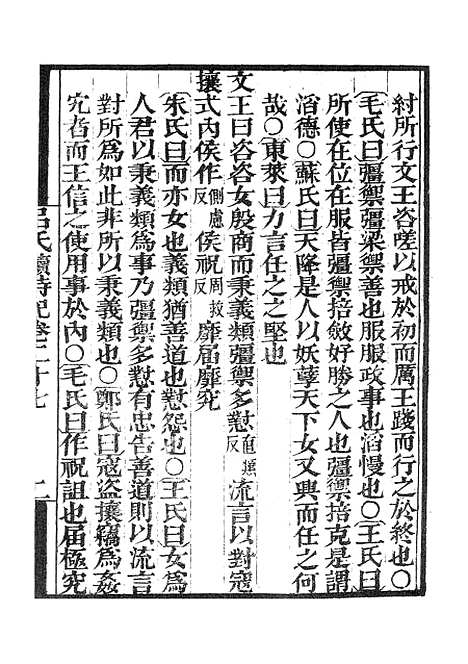 紂所行文王咨嗟以戒於初而厲王踐而行之於終也○
毛氏曰彊禦彊梁禦善也服服政事也滔慢也○王氏曰
所使在位在服皆彊禦掊斂好勝之人也彊禦掊克是謂
滔德○蘇氏曰天降是人以妖孽天下女又興而任之何
哉○東萊曰力言任之之堅也
文王曰咨咨女殷商而秉義類彊禦多懟直類反流言以對寇
攘式內侯作側慮反侯祝周救反靡屆靡究
朱氏曰而亦女也義類猶善道也懟怨也○王氏曰女為
人君以秉義類為事乃彊禦多懟有忠告善道則以流言
對所為如此非所以秉義類也○鄭氏曰寇盜攘竊為姦
宄者而王信之使用事於內○毛氏曰作祝詛也屆極究
呂氏讀詩記卷二十七 十一